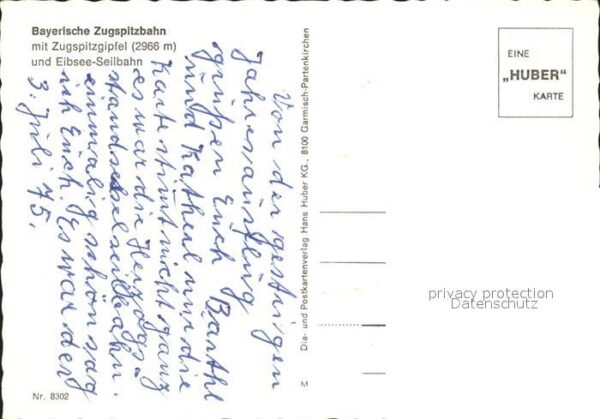 Bayerische Zugspitzbahn
mit Zugspitzgipfel (2966 m)
und Eibsee-Seilbahn
Von der gestrigen
Jahresausflug
grüßen Euch Barthl
und Katherl und die
Karte stimt nicht ganz
es war die Herzogs-
standsesselseilbahn.
einmalig schön sag
ich Euch. Es war der
3. Juli 75.
Nr. 8302
M Dia- und Postkartenverlag Hans Huber KG., 8100 Garmisch-Partenkirchen
EINE
„HUBER“
KARTE
privacy protection
Datenschutz